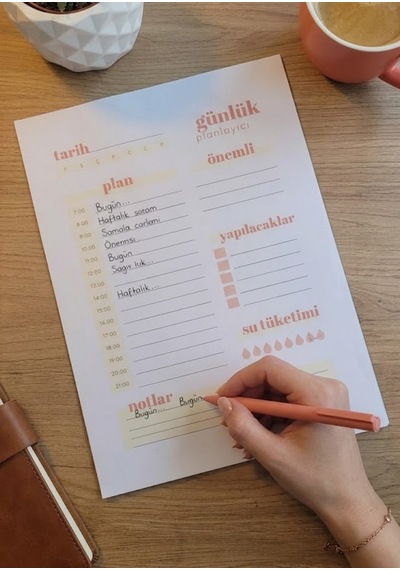 günlük
planlayıcı
tarih
P S Ç P C C P
önemli
plan
7:00 Bugün...
8:00 Haftalık
9:00
10:00 Önemisı
11:00 Bugün
12:00
13:00
14:00 Haftalık...
15:00
16:00
17:00
18:00
19:00
20:00
21:00
yapılacaklar
su tüketimi
notlar
Bugün... Bugün